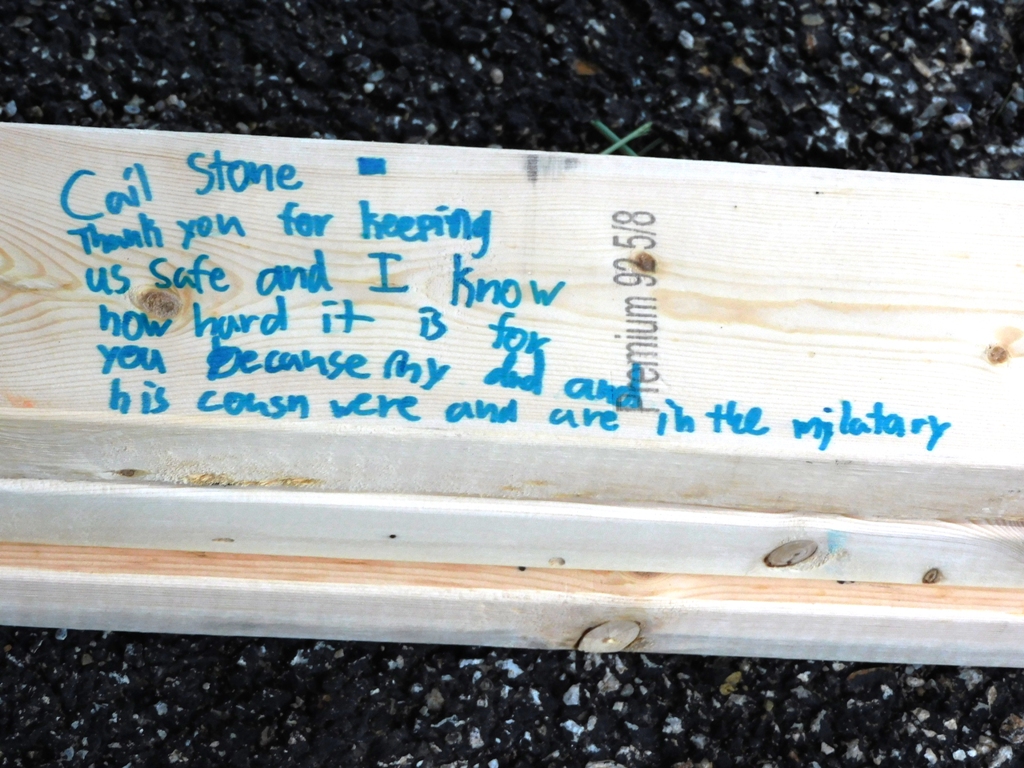 Cail Stone
Thank you for keeping
us safe and I know
how hard it is for
you because my dad and
his cousn were and are in the milatary
Premium 92 5/8